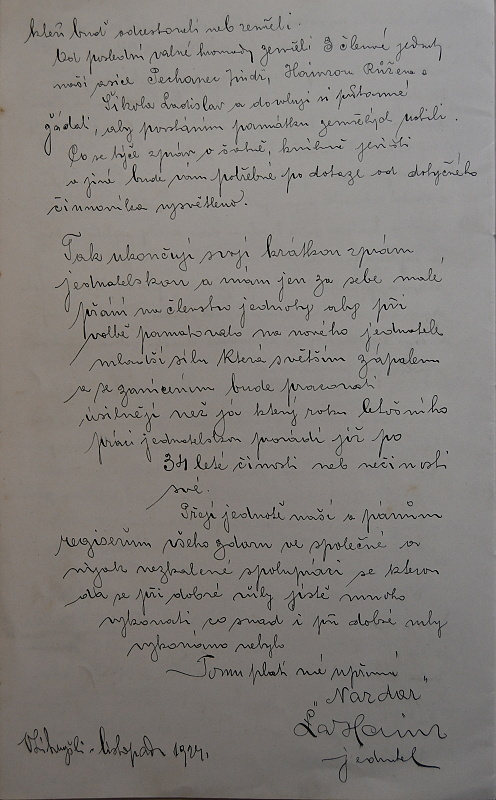 kteří buď odcestovali neb zemřeli.
Od poslední valné hromady zemřeli 3 členové jednoty
naší a sice Pechanec Jindř, Hainzou Růžena a
Šikola Ladislav a dovoluji si přítomné
žádati, aby povstáním památku zemřelých uctili.
Co se týče zpráv o šatně, knihně jevišti
a jiné bude vám potřebné po dotaze od dotyčného
činovníka vysvětleno.
Tak ukončuji svoji krátkou zprávu
jednatelskou a mám jen za sebe malé
přání na členstvo jednoty aby při
volbě pamatovalo na nového jednatele
mladší sílu která světším zápalem
a se zanícením bude pracovati
úsilněji než já který roku letošního
práci jednatelskou provádí již po
34 leté činosti neb nečinosti
své.
Přeji jednotě naší a pánům
regiseřům všeho zdaru ve společné a
nijak nezkalené spolupráci se kterou
dá se při dobré vůly jistě mnoho
vykonati co snad i při dobré vuly
vykonáno nebylo
Tomu platí mé upřímné
"Nazdar"
jednatel
listopadu 1924.